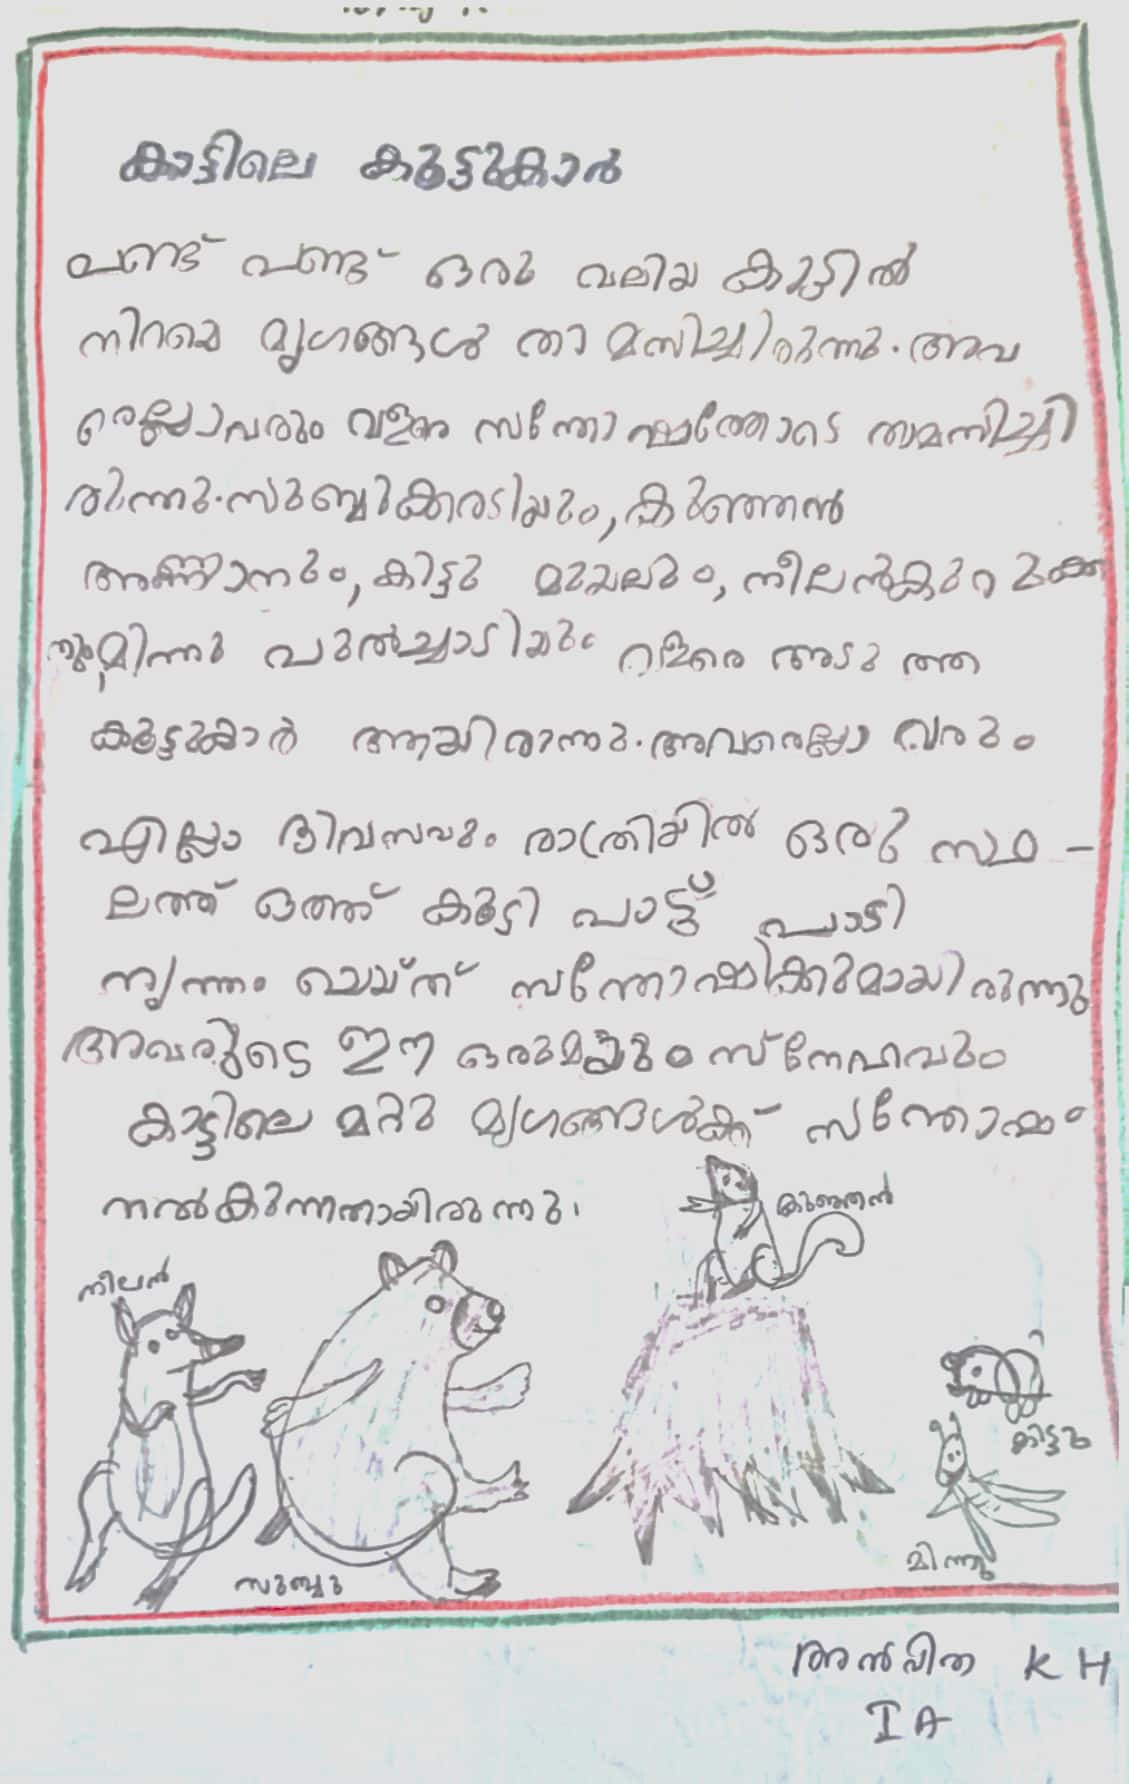 കാട്ടിലെ കൂട്ടുകാർ
പണ്ട് പണ്ട് ഒരു വലിയ കാട്ടിൽ
നിറയെ മൃഗങ്ങൾ താമസിച്ചിരുന്നു. അവ
രെല്ലാവരും വളരെ സന്തോഷത്തോടെ താമസിച്ചി
രുന്നു. സുബ്ബുക്കരടിയും, കുഞ്ഞൻ
അണ്ണാനും, കിട്ടു മുയലും, നീലൻകുറുക്ക
നും, മിന്നു പുൽച്ചാടിയും വളരെ അടുത്ത
കൂട്ടുകാർ ആയിരുന്നു. അവരെല്ലാവരും
എല്ലാ ദിവസവും രാത്രിയിൽ ഒരു സ്ഥ -
ലത്ത് ഒത്തു കൂടി പാട്ട് പാടി
നൃത്തം ചെയ്ത് സന്തോഷിക്കുമായിരുന്നു
അവരുടെ ഈ ഒരുമയും സ്നേഹവും
കാട്ടിലെ മറ്റു മൃഗങ്ങൾക്ക് സന്തോഷം
നൽകുന്നതായിരുന്നു.
കുഞ്ഞൻ
നീലൻ
കിട്ടു
മിന്നു
സുബ്ബു
അൻവിത K H
I A